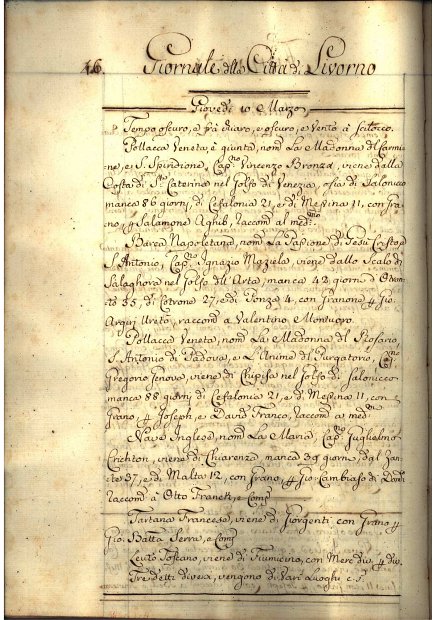 46. Giornale della Città di Livorno
Giovedì 10 Marzo,
Tempo oscuro, e pa chiaro, e oscuro, e Vento à scilocco.
Pollacca Veneta, è giunta, nom La Madonna del Carmi=
ne, e S. Spiridione, Capno Vincenzo Bronza, viene dalla
Costa di Sta Caterina nel Golfo di Venezia, osia di Salonicco
manca 86 giorni, di Cefalonia 21, e di Messina 11, con gra=
no, p Salamone Aghib, raccom al medmo
Barca Napoletana, nom La Passione di Gesù Cristo, e
S. Antonio, Capno Ignazio Maziela viene dallo Scalo di
Salaghora nel Golfo dell'Arta, manca 42 giorni, d'Otran=
to 35, di Cotrone 27, e di Ponza 4, con granone p Gio:
Argiri Ureto, raccom a Valentino
Pollacca Veneta, nom La Madonna del Rosario,
S. Antonio di Padova, e L'Anime del Purgatorio, Capno
Gregorio Genova, viene di nel Golfo di Salonicco
manca 88 giorni di Cefalonia 21, e di Messina 11, con
Grano, p Joseph, e David Franco, raccom a medmi
Nave Inglese, nom La Maria, Capno Guglielmo
Crichton, viene di Chiarenza manca 39 giorni, dal Zan=
te 37, e di Malta 12, con Grano, p Gio: Cambiaso di
raccom a Otto Franck, e Comp
Tartana Francese, viene di Giorgenti con Grano p
Gio: Batta Serra, e Comp
Leuto Toscano, viene di Fiumicino, con Merc div. p div.
Tre detti diversi, vengono di Vari Luoghi c. s.